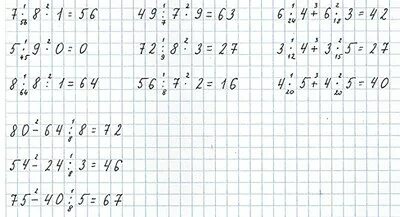 1 2 1 2 1 3 2
7 · 8 : 1 = 56 49 : 7 · 9 = 63 6 · 4 + 6 · 3 = 42
56 7 24 18
1 2 1 2 1 3 2
5 · 9 · 0 = 0 72 : 8 · 3 = 27 3 · 4 + 3 · 5 = 27
45 9 12 15
1 2 1 2 1 3 2
8 · 8 : 1 = 64 56 : 7 · 2 = 16 4 · 5 + 4 · 5 = 40
64 8 20 20
2 1
80 - 64 : 8 = 72
8
2 1
54 - 24 : 3 = 46
8
2 1
75 - 40 : 5 = 67
8